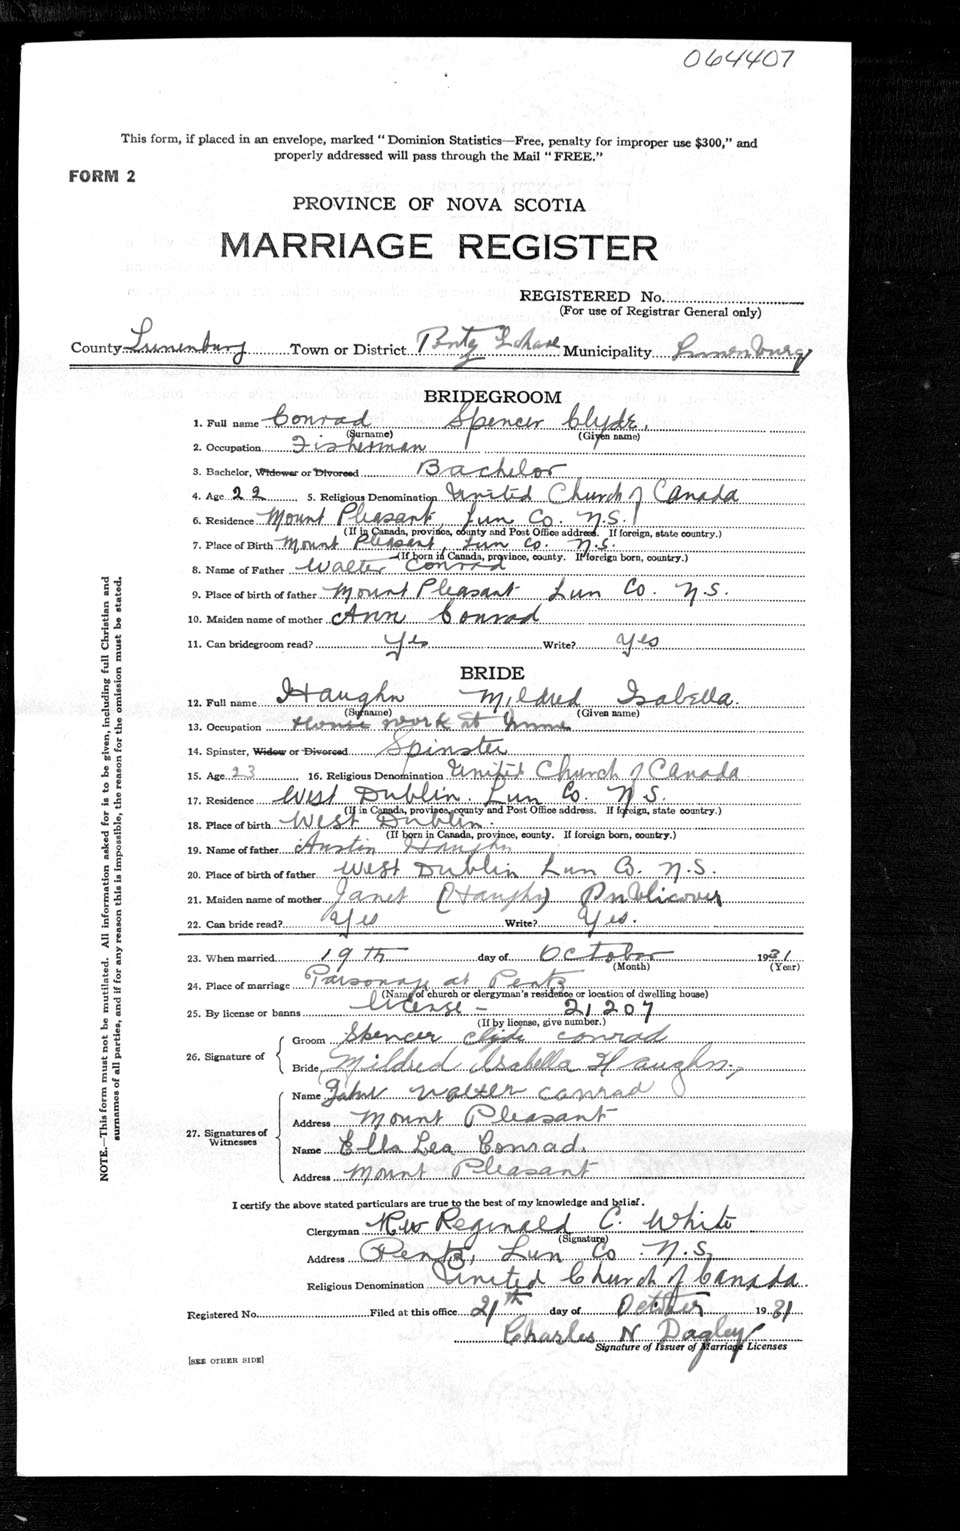 064407
This form, if placed in an envelope, marked "Dominion Statistics—Free, penalty for improper use $300," and
properly addressed will pass through the Mail "FREE."
FORM 2
PROVINCE OF NOVA SCOTIA
MARRIAGE REGISTER
REGISTERED No.
(For use of Registrar General only)
County Lunenburg Town or District Pentz Lahave Municipality Lunenburg
BRIDEGROOM
1. Full name Conrad Spencer Clyde,
(Surname) (Given name)
2. Occupation Fisherman
3. Bachelor, Widower or Divorced Bachelor
4. Age 22 5. Religious Denomination United Church of Canada
6. Residence Mount Pleasant, Lun Co. N.S.
(If in Canada, province, county and Post Office address. If foreign, state country.)
7. Place of Birth Mount Pleasant, Lun Co. N.S.
(If born in Canada, province, county. If foreign born, country.)
8. Name of Father Walter Conrad
9. Place of birth of father Mount Pleasant Lun Co. N.S.
10. Maiden name of mother Ann Conrad
11. Can bridegroom read? Yes Write? Yes
BRIDE
12. Full name Haughn Mildred Isabella.
(Surname) (Given name)
13. Occupation House work at home
14. Spinster, Widow or Divorced Spinster
15. Age 23 16. Religious Denomination United Church of Canada
17. Residence West Dublin. Lun Co. N.S.
(If in Canada, province, county and Post Office address. If foreign, state country.)
18. Place of birth West Dublin.
(If born in Canada, province, county. If foreign born, country.)
19. Name of father Austin Haughn
20. Place of birth of father West Dublin Lun Co. N.S.
21. Maiden name of mother Janet (Haughn) Publicover
22. Can bride read? Yes Write? Yes.
23. When married 19th day of October 1931
(Month) (Year)
24. Place of marriage Parsonage at Pentz
(Name of church or clergyman's residence or location of dwelling house)
25. By license or banns license - 21207
(If by license, give number.)
26. Signature of Groom Spencer Clyde Conrad
Bride Mildred Isabella Haughn,
27. Signatures of Witnesses
Name John Walter Conrad
Address Mount Pleasant
Name Ella Lea Conrad.
Address Mount Pleasant
I certify the above stated particulars are true to the best of my knowledge and belief.
Clergyman Rev Reginald C. White
(Signature)
Address Pentz, Lun Co N.S.
Religious Denomination United Church of Canada.
Registered No. Filed at this office 21th day of October 1931
Charles N Dagley
Signature of Issuer of Marriage Licenses
[SEE OTHER SIDE]
NOTE.—This form must not be mutilated. All information asked for is to be given, including full Christian and
surnames of all parties, and if for any reason this is impossible, the reason for the omission must be stated.